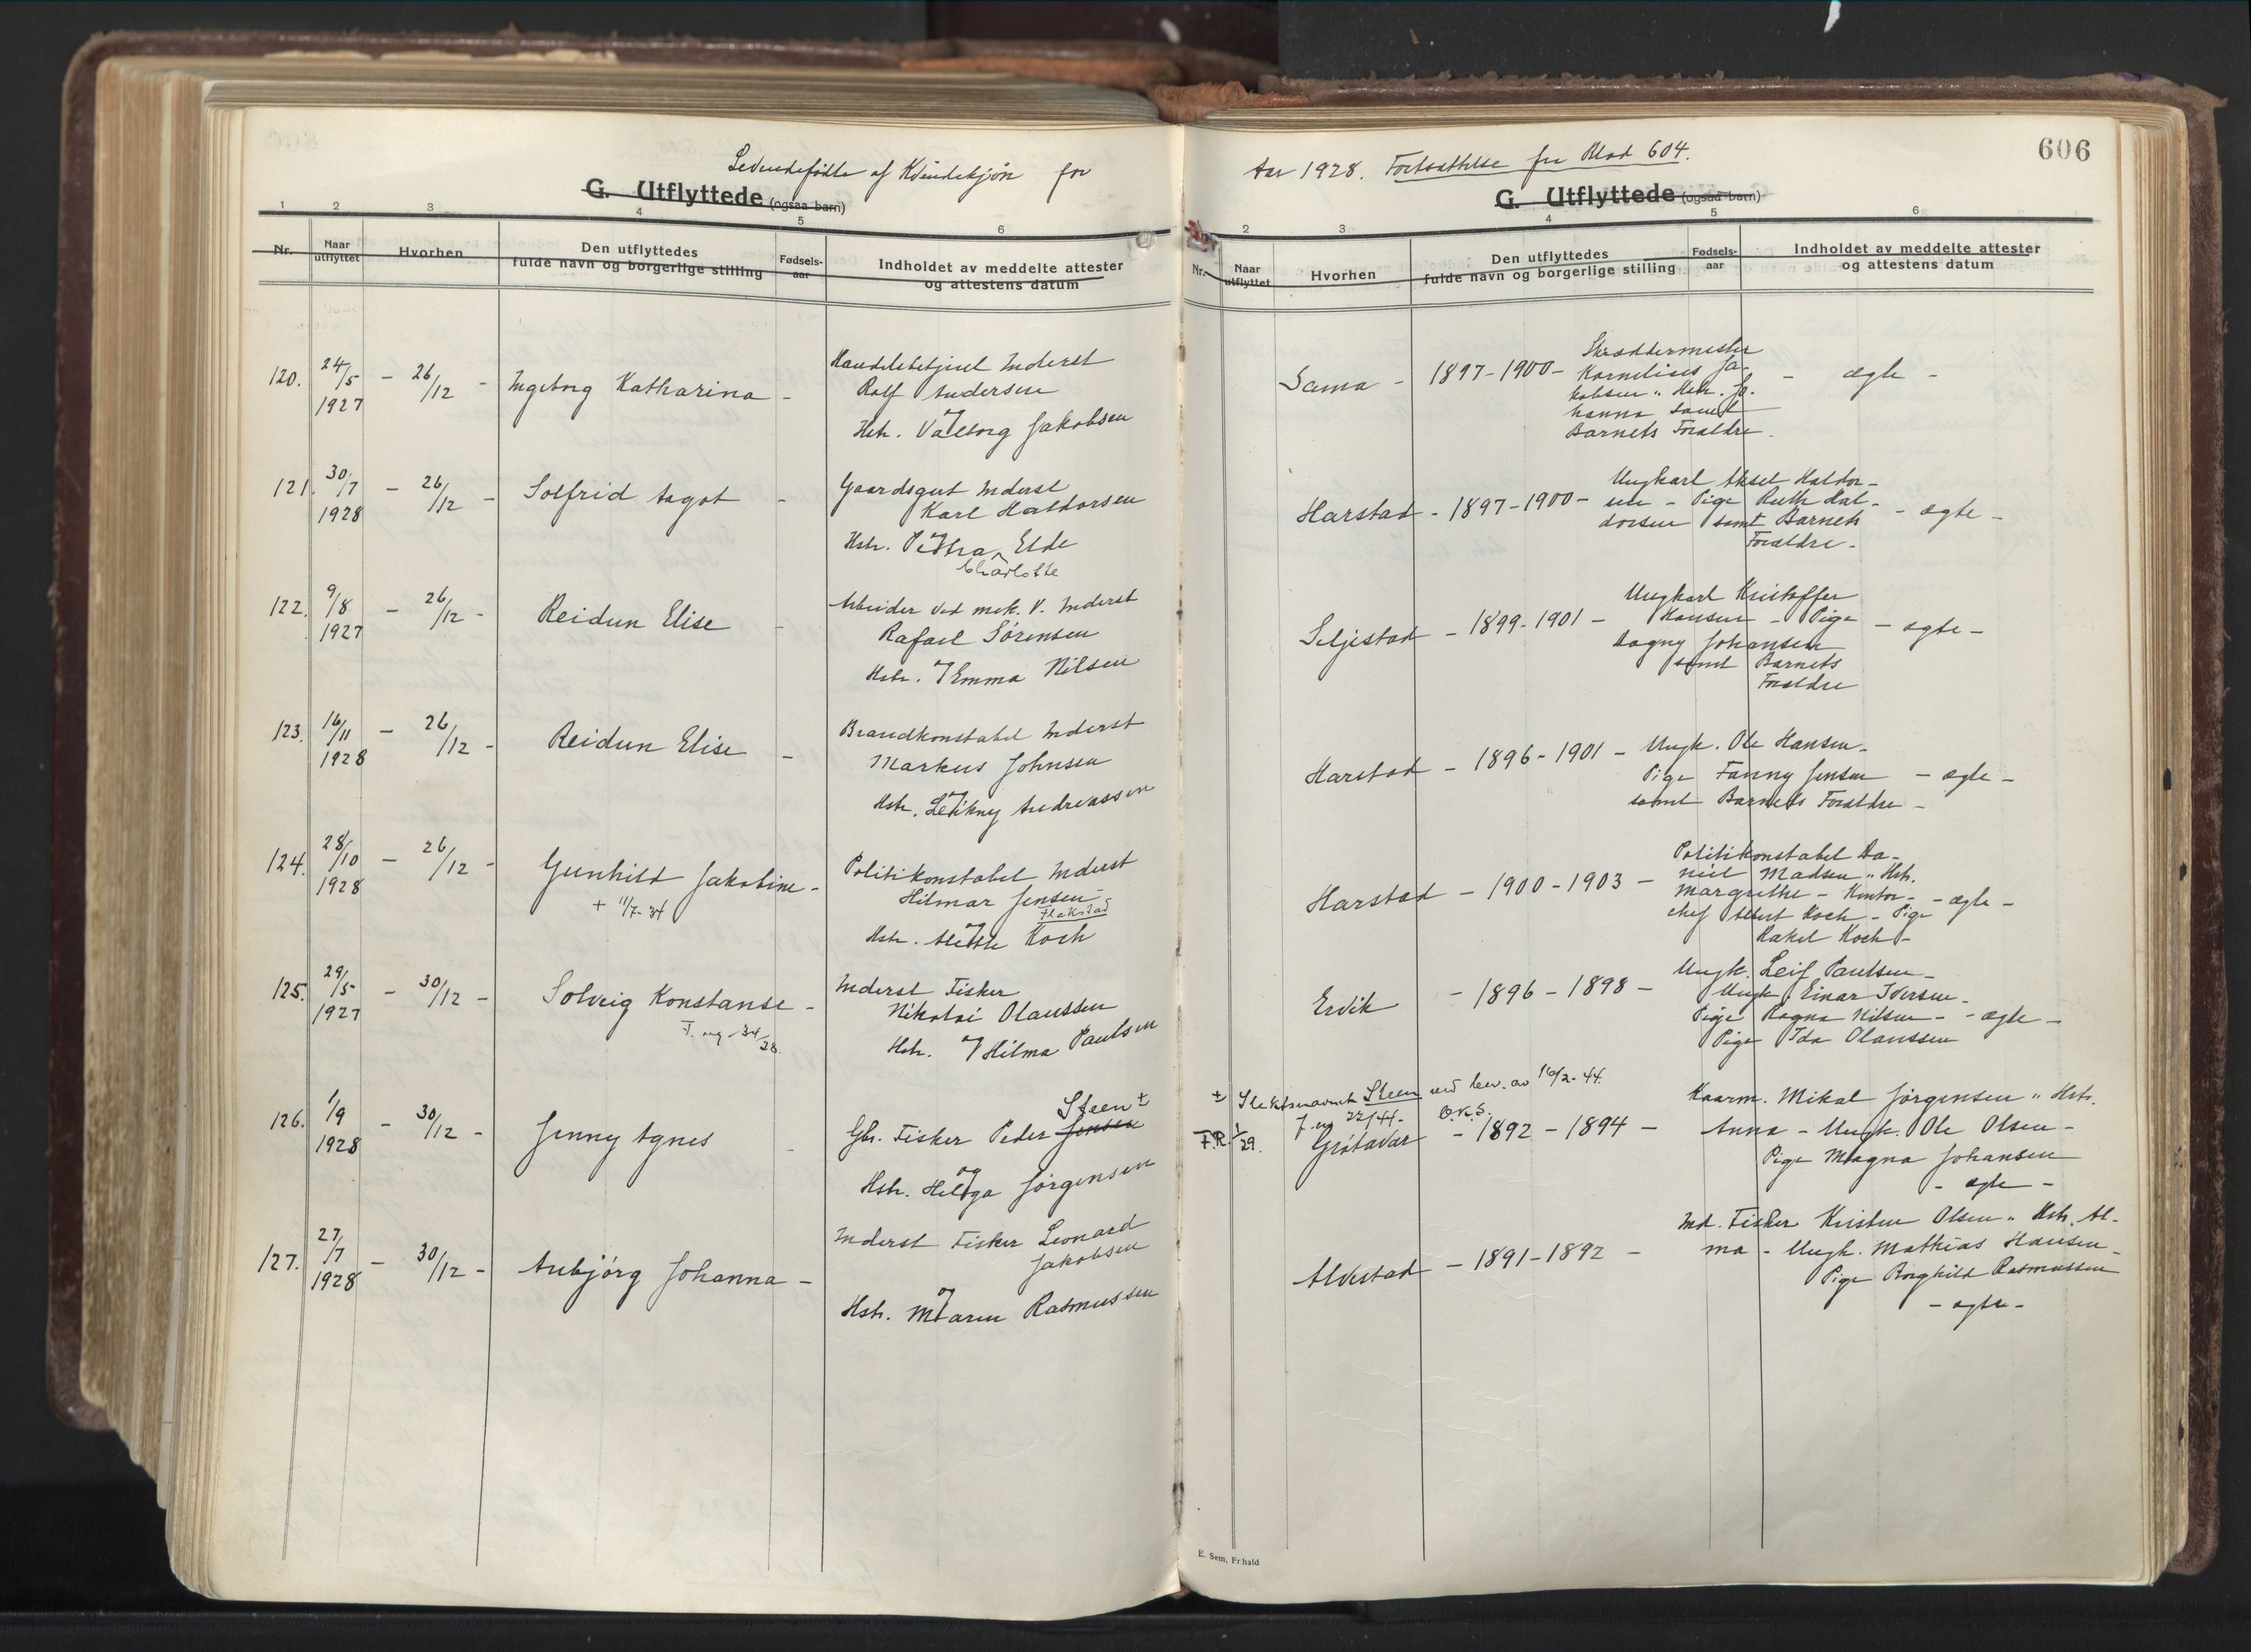 Levendefødte af Kvindekjøn for
G. Utflyttede (ogsaa barn)
1 2 3 4 5 6
Nr.
Naar utflyttet
Hvorhen
Den utflyttedes
fulde navn og borgerlige stilling
Fødsels-
aar
Indholdet av meddelte attester
og attestens datum
120. 24/5 1927 - 26/12 - Ingeborg Katharina -
Handelsbetjent Inderst
Rolf Andersen
og
Hstr. Valborg Jakobsen
121. 30/7 1928 - 26/12 - Solfrid Aagot -
Gaardsgut Inderst
Karl Haldorsen
og
Hstr. Petra Elde
Charlotte
122. 9/8 1927 - 26/12 - Reidun Elise -
Arbeider ved mek. V. Inderst
Rafael Sørensen
og
Hstr. Emma Nilsen
123. 16/11 1928 - 26/12 - Reidun Elise -
Brandkonstabel Inderst
Markus Johnsen
og
Hstr. Leikny Andreassen
124. 28/10 1928 - 26/12 - Gunhild Jakobine -
+ 11/7-34
Politikonstabel Inderst
Hilmar Jensen-
Flakstad
og
Hstr. Alette Koch
125. 29/5 1927 - 30/12 - Solveig Konstanse -
Inderst Fisker
Nikolai Olaussen
og
Hstr. Hilma Paulsen
126. 1/9 1928 - 30/12 - Jenny Agnes -
Steen ±
Gbr. Fisker Peder Jensen
og
Hstr. Helga Jørgensen
127. 27/7 1928 - 30/12 - Aubjørg Johanna -
Inderst Fisker Leonard
Jakobsen
og
Hstr. Maren Rasmussen
606
Aar 1928. Fortsættelse fra Blad 604.
G. Utflyttede (ogsaa barn)
2 3 4 5 6
Nr.
Naar utflyttet
Hvorhen
Den utflyttedes
fulde navn og borgerlige stilling
Fødsels-
aar
Indholdet av meddelte attester
og attestens datum
Sama - 1897-1900-
Skræddermester
Kornelius Ja-
kobsen " Hstr. Jo-
hanna samt
Barnets Forældre -
- ægte -
Harstad - 1897-1900-
Ungkarl Aksel Haldor-
sen - Pige Ruth Hal-
dorsen samt Barnets
Forældre -
- ægte -
Seljestad - 1899-1901 -
Ungkarl Kristoffer
Hansen - Pige
Dagny Johansen
samt Barnets
Forældre
- ægte -
Harstad - 1896-1901 -
Ungk. Ole Hansen -
Pige Fanny Jensen
samt Barnets Forældre -
- ægte -
Harstad - 1900-1903 -
Politikonstabel Da-
niel Madsen " Hstr.
Margrethe - Kontor-
chef Albert Koch - Pige
Rakel Koch -
- ægte -
Ervik - 1896-1898 -
Ungk. Leif Paulsen -
Ungk. Einar Iversen -
Pige Ragna Nilsen -
Pige Ida Olaussen
- ægte -
± Slektsnavnet Steen ved bev. av 16/2-44.
J. no 22/44. O.K.S.
F.R. 1/29. Grøtavær - 1892-1894 -
Kaarm. Mikal Jørgensen " Hstr.
Anna - Ungk. Ole Olsen -
Pige Magna Johansen
- ægte -
Alvestad - 1891-1892 -
Ind. Fisker Kristen Olsen " Hstr. Al-
ma - Ungk. Mathias Hansen -
Pige Borghild Rasmussen
- ægte -
E. Sem, Fr.hald